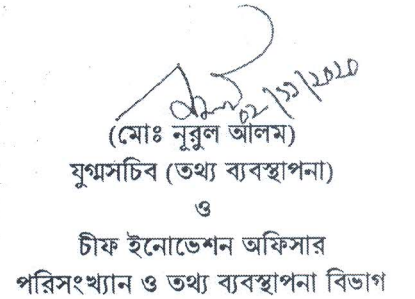 ০২/১১/২০২০
(মোঃ নূরুল আলম)
যুগ্মসচিব (তথ্য ব্যবস্থাপনা)
ও
চীফ ইনোভেশন অফিসার
পরিসংখ্যান ও তথ্য ব্যবস্থাপনা বিভাগ